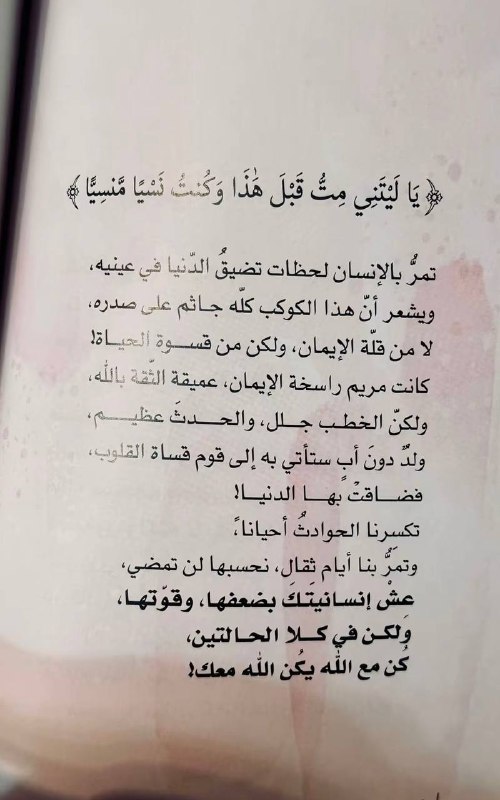 ﴿ يَا لَيْتَنِي مِتُّ قَبْلَ هَٰذَا وَكُنتُ نَسْيًا مَّنسِيًّا ﴾
تمرُّ بالإنسان لحظات تضيقُ الدّنيا في عينيه،
ويشعر أنّ هذا الكوكب كلّه جاثم على صدره،
لا من قلّة الإيمان، ولكن من قسوة الحياة!
كانت مريم راسخة الإيمان، عميقة الثّقة بالله،
ولكنّ الخطب جلل، والحدثَ عظيم،
ولدٌ دونَ أبٍ ستأتي به إلى قوم قساة القلوب،
فضاقتْ بها الدنيا!
تكسرنا الحوادثُ أحياناً،
وتمرُّ بنا أيام ثقال، نحسبها لن تمضي،
عشْ إنسانيتَكَ بضعفها، وقوّتها،
ولكن في كلا الحالتين،
كُن مع الله يكُن الله معك!